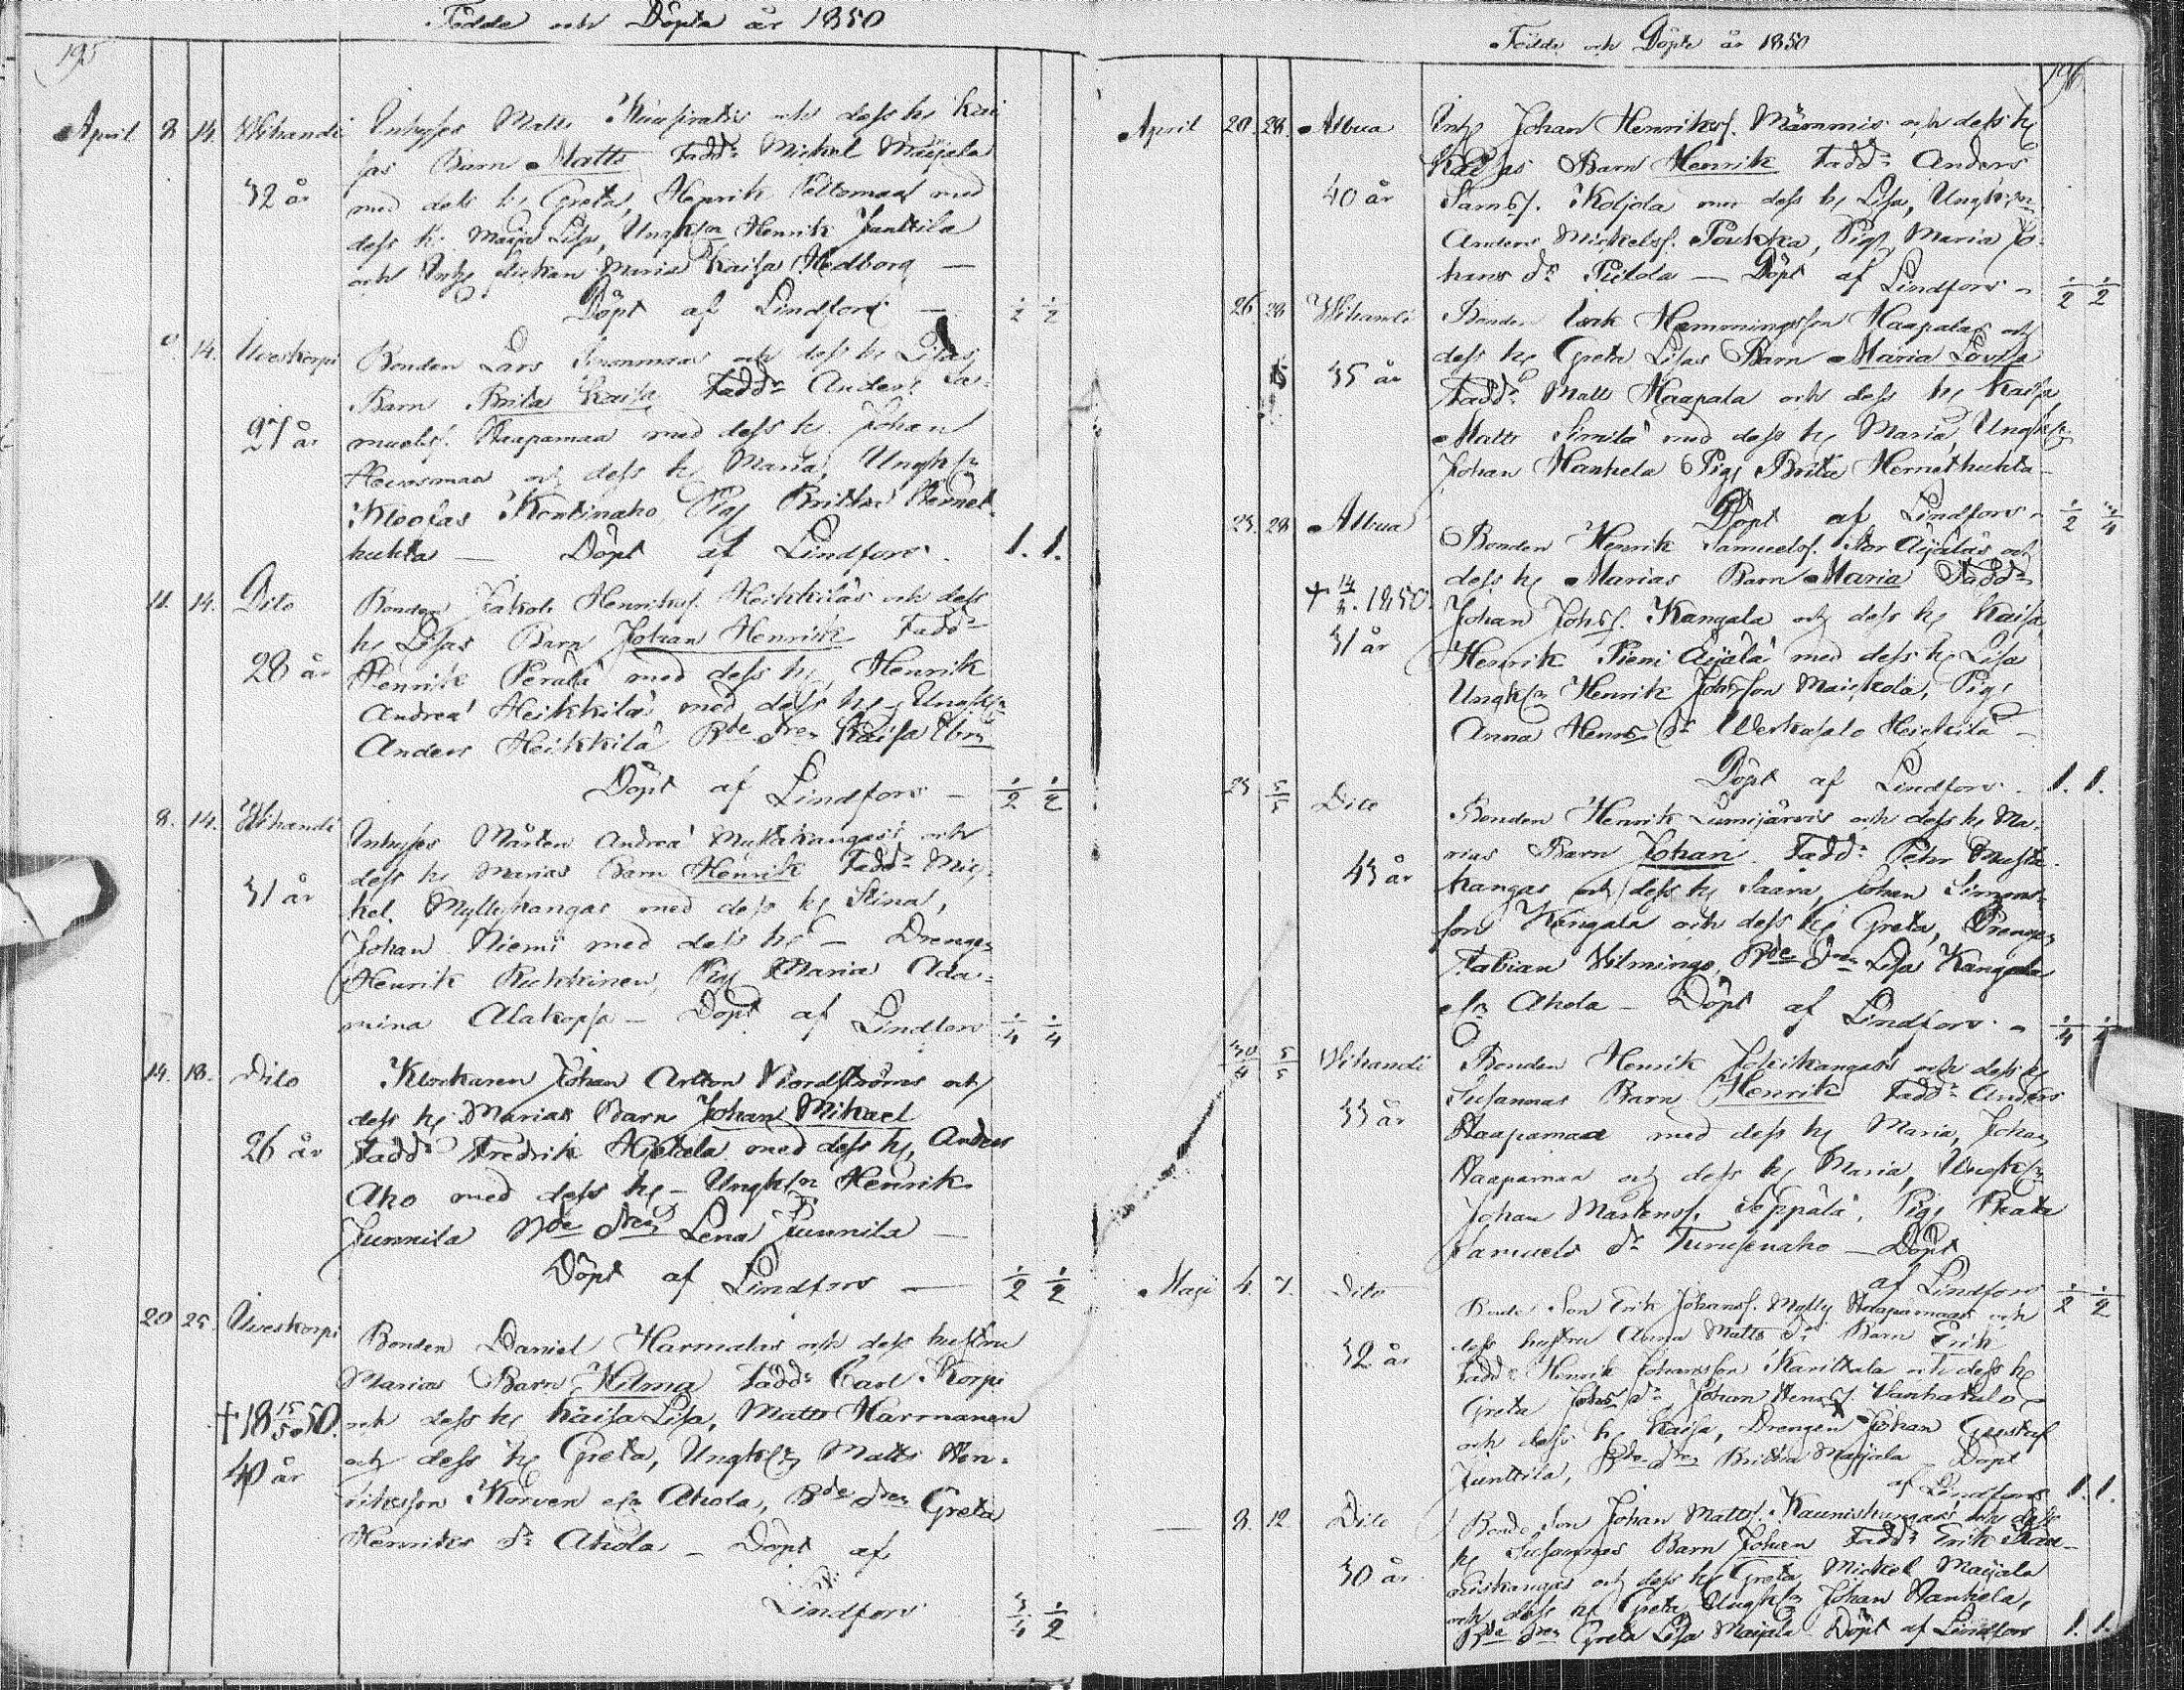 Födde och Döpte år 1850
195
April 8 14. Wihandi Inhyses Matts och dess h. Kai
sas Barn Matts Fadd: Mickel Maijala
32 år med dess h. Greta, Henrik Peltomaa med
dess h. Maija Lisa, Ungk:n Henrik Junttila
och Inh. flickan Maria Kaisa Hedborg —
Döpt af Lindfors — ½ ½
14. Uveskorpi Bonden Lars och dess h. Lisas
Barn Brita Kaisa Fadd: Anders Sa-
27 år muelsf. Haapamaa med dess h. Johan
och dess h. Maria, Ungk:n
Kontinaho Pig. Britta Hernet-
huhta — Döpt af Lindfors. 1. 1.
11. 14. Dito Bonden Jakob Henriksf. Heikkiläs och dess
h. Lisas Barn Johan Henrik Fadd:
28 år Henrik Perälä med dess h. Henrik
Andrea Heikkilä med dess h. – Ungk:n
Anders Heikkilä Bde Dren Kaisa
Döpt af Lindfors — ½ ½
8. 14. Wihandi Inhyses Mårten Andrea och
dess h. Marias Barn Henrik Fadd: Mic-
31 år kel. Myllykangas med dess h. Stina,
Johan Niemi med dess h. – Drengen
Henrik Pig. Maria Ada-
mina Alakopsa – Döpt af Lindfors ¼ ¼
14. 18. Dito Klockaren Johan Anton Nordströms och
dess h. Marias Barn Johan Mikael
26 år Fadd: Fredrik Hietala med dess h. Anders
Aho med dess h. – Ungk:n Henrik
Junnila Bde Dren Lena Junnila —
Döpt af Lindfors — ½ ½
20 25. Uveskorpi Bonden Daniel Harmalas och dess hustru
Marias Barn Hilma Fadd: Carl Korpi
† 18 15/5 50. och dess h. Kaisa Lisa, Matts Harmanen
40 år och dess h. Greta, Ungk:n Matts Hen-
riksson Korven Ahola, Bde Dren Greta
Henriks Dr Ahola – Döpt af
Lindfors ¾ ½
Födde och Döpte år 1850
196
April 20. 28 Albua Inh. Johan Henriksf. Mämmis och dess h.
Kaisas Barn Henrik Fadd: Anders
40 år Samsf. Koljola med dess h. Lisa, Ungk:n
Anders Mickelsf. Poukka, Pig. Maria Jo-
hans Dr Pietola — Döpt af Lindfors – ½ ½
26. 28 Wihandi Bonden Isak Hemmingsson Haapalas och
dess h. Greta Lisas Barn Maria Lovisa
35 år Fadd: Matts Haapala och dess h. Kaisa,
Matts Simila med dess h. Maria, Ungk:n
Johan Hankela & Pig. Brita Hernethuhta –
Döpt af Lindfors – ½ ¾
23. 28 Albua Bonden Henrik Samuelsf. Stor Äijäläs och
dess h. Marias Barn Maria Fadd:
† 14/8. 1850. Johan Johsf. Kangala och dess h. Kaisa,
31 år Henrik Pieni Äijälä med dess h. Lisa
Ungk:n Henrik Johsson Maijkola, Pig.
Anna Henrs Dr Werkasalo Heickilä –
Döpt af Lindfors. 1. 1.
23 5/5 Dito Bonden Henrik Lumijärvis och dess h. Ma-
rias Barn Johan. Fadd: Pehr Musta-
43 år kangas och dess h. Saara, Johan Simons-
son Kangala och dess h. Greta, Drengen
Fabian Vilmingo, Bde Dren Lisa Kangala
Ahola – Döpt af Lindfors – ¼ ¼
30/4 5/5 Wihandi Bonden Henrik Jokikangas's och dess h.
Susannas Barn Henrik Fadd: Anders
33 år Haapamaa med dess h. Maria, Johan
Haapamaa och dess h. Maria, Ungk:n
Johan Mårtensf. Seppälä, Pig. Beata
Samuels Dr Turusenaho – Döpt
af Lindfors ½ ½
Maji 4. 7. Dito Bonde Son Erik Johansf. Mylly Haapamaas och
dess hustru Anna Matts Dr Barn Erik
32 år Fadd: Henrik Johansson och dess h.
Greta Johs Dr Johan Henrsf. Vanhatalo
och dess h. Kaisa, Drengen Johan Gustaf
Junttila, Bde Dren Britta Maijala – Döpt
af Lindfors 1. 1.
— 8. 12 Dito Bonde Son Johan Mattsf. Kauniskangas's och dess
h. Susannas Barn Johan Fadd: Erik Kau-
30 år niskangas och dess h. Greta, Mickel Maijala
och dess h. Greta, Ungk:n Johan Hankela,
Bde Dren Greta Lisa Maijala – Döpt af Lindfors 1. 1.